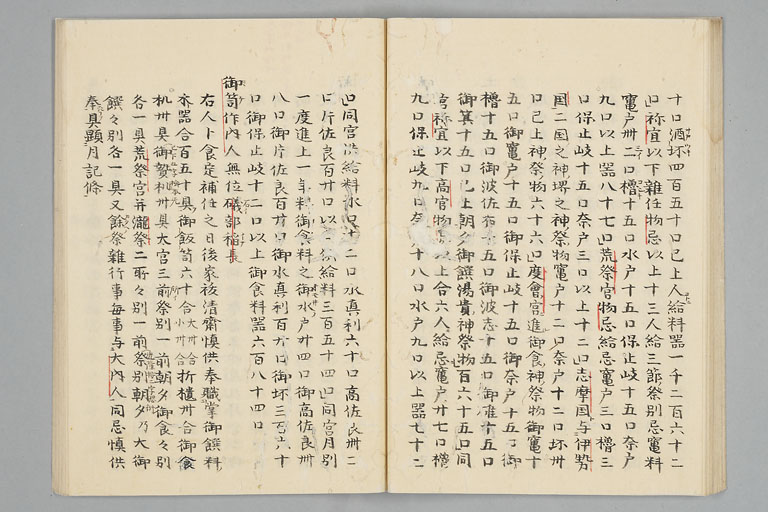 十口酒坏四百五十口已上人給料器一千二百六十二
口祢宜以下雜任物忌以上十三人給三節祭別忌竃料
竃戸卅二口槽十五口水戸十五口保止岐十五口奈戸
九口以上器八十七口荒祭宮物忌給忌竃戸三口槽三
口保止岐十五口奈戸三口以上十二口志摩国与伊勢
国二国之神堺之神祭物竃戸十二口奈戸十二口坏卅
口已上神祭物六十六口度會宮進御食神祭物御竃十
五口御竃戸十五口御保止岐十五口御奈戸十五口御
槽十五口御波佐布十五口御波志十五口御碓十五口
御箕十五口已上朝夕御饌湯貴神祭物百六十五口同
宮祢宜以下高宮物忌以上合六人給忌竃戸廿七口槽
九口保止岐九口奈戸十八口水戸九口以上器七十二
口同宮洪給料水戸十二口水真利六十口高佐良卅二
口片佐良百廿口以上洪給料三百五十四口同宮月別
一度進上一年料御食料之御水戸卅四口御高佐良卅
八口御片佐良百廿口御水真利百廿口御坏三百六十
口御保止岐十二口以上御食料器六百八十四口
御笥作内人無位礒部稲長
右人卜食定補任之日後家祓清齋慎供奉職掌御饌料
木器合百五十具御飯笥六十合大卅合小卅合折櫃卅合御食
机卅具御贄机卅具大宮三前祭別一前朝夕御食々別
各一具荒祭宮并瀧祭二所々別一前祭別朝夕乃大御
饌々別各一具又餘祭雜行事毎事与大内人同忌慎供
奉具顕月記條